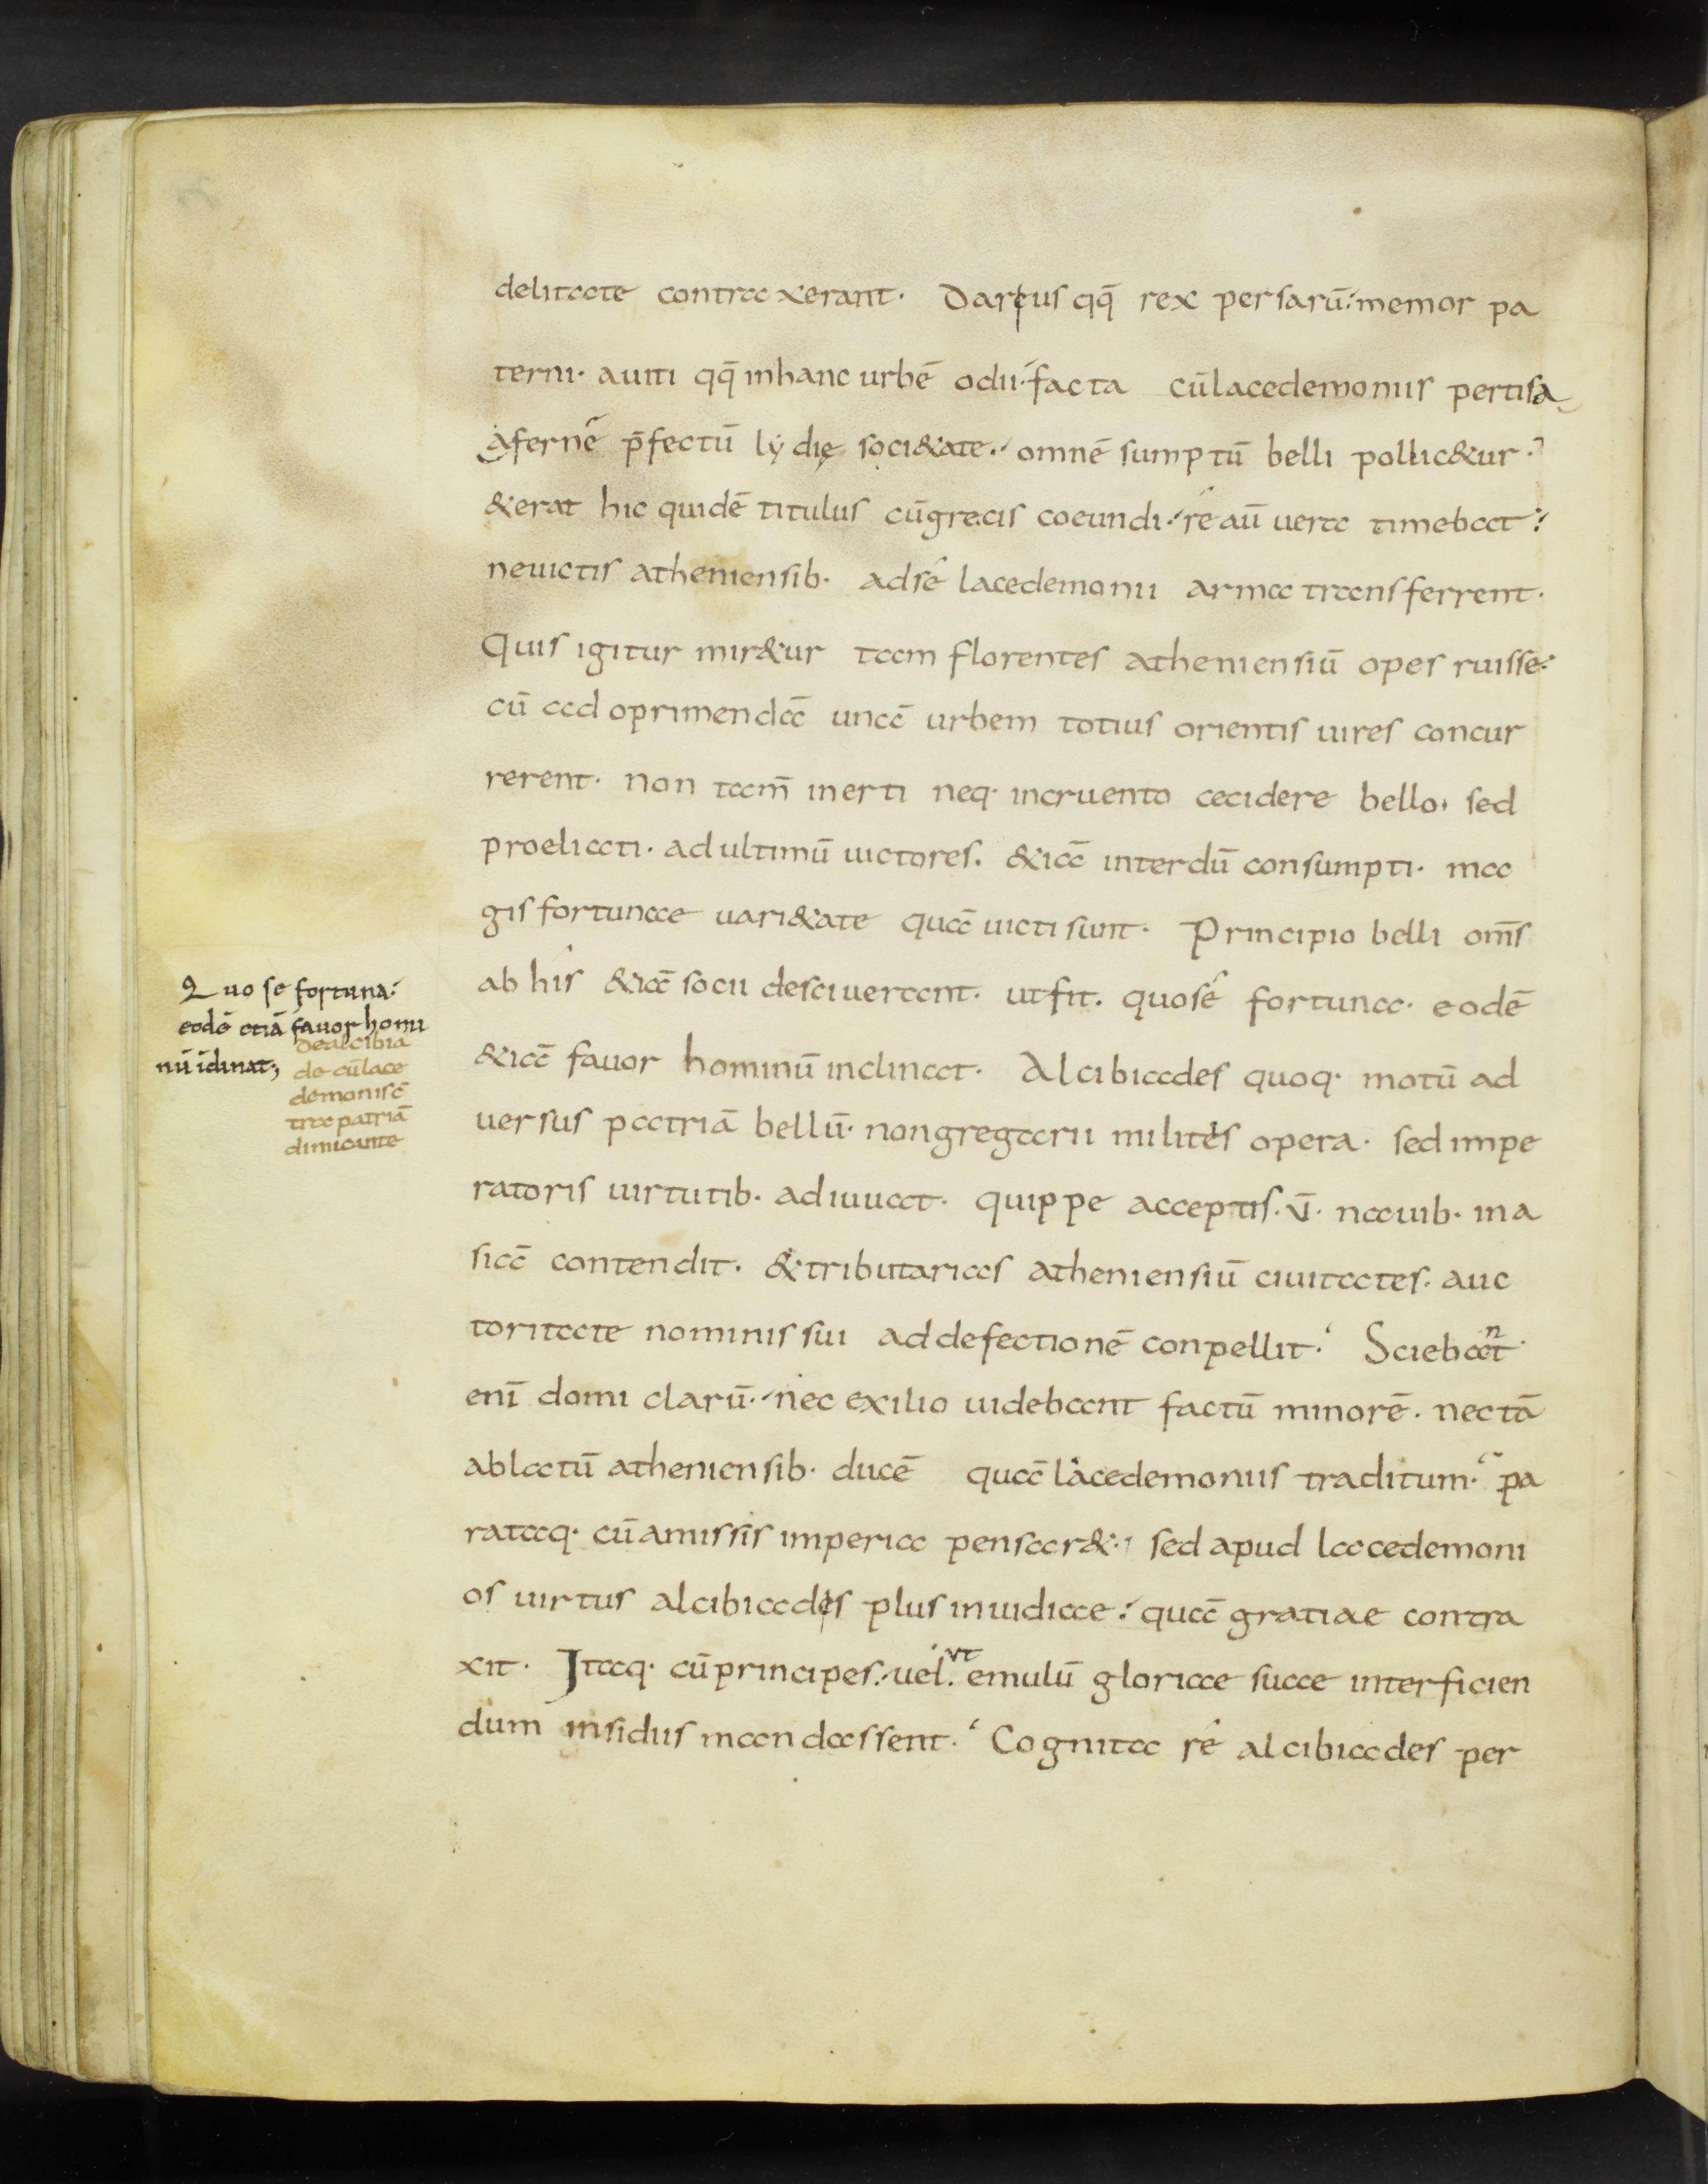 delitate contraxerant. Dareus qq̄ rex persarū memor pa
terni. auiti qq̄ inhanc urbē odii. facta cū lacedemoniis pertisa
afernē p̄fectū lydię soci&ate. omnē sumptū belli pollic&ur.
&erat hic quidē titulus cūgrecis coeundi. re aū uera timebat.
neuictis atheniensib. adse lacedemonii arma transferrent.
Quis igitur mir&ur tam florentes atheniensiū opes ruisse.
cū ad oprimendā unā urbem totius orientis uires concur
rerent. Non tam̄ inerti neq. incruento cecidere bello. sed
proeliati. ad ultimū uictores. &iā interdū consumpti. ma
gis fortunae uari&ate quā uicti sunt. Principio belli om̄s
ab his &iā socii desciuerant. utfit. quose fortuna. eodē
&iā fauor hominū inclinat. Alcibiades quoq. motū ad
uersus patriā bellū. non gregarii militis opera. sed impe
ratoris uirtutib. adiuuat. quippe acceptis. v̄. nauib. in a
siā contendit. &tributarias atheniensiū ciuitates. auc
toritate nominis sui ad defectionē conpellit. Sciebant
enī domi clarū. nec exilio uidebant factū minorē. nec tā
ablatū atheniensib. ducē quā lacedemoniis traditum. pa
rataq. cū amissis imperia pensar&. sed apud lacedemoni
os uirtus alcibiadis plus inuidiae. quā gratiae contra
xit. Itaq. cū principes. uel. vt emulū gloriae suae interficien
dum insidiis mandassent. Cognita re alcibiades per
Quo se fortuna.
eodē etiā fauor homi
nū īclinat;
De alcibia
de cū lace
demonis c̄
tra patriā
dimicante